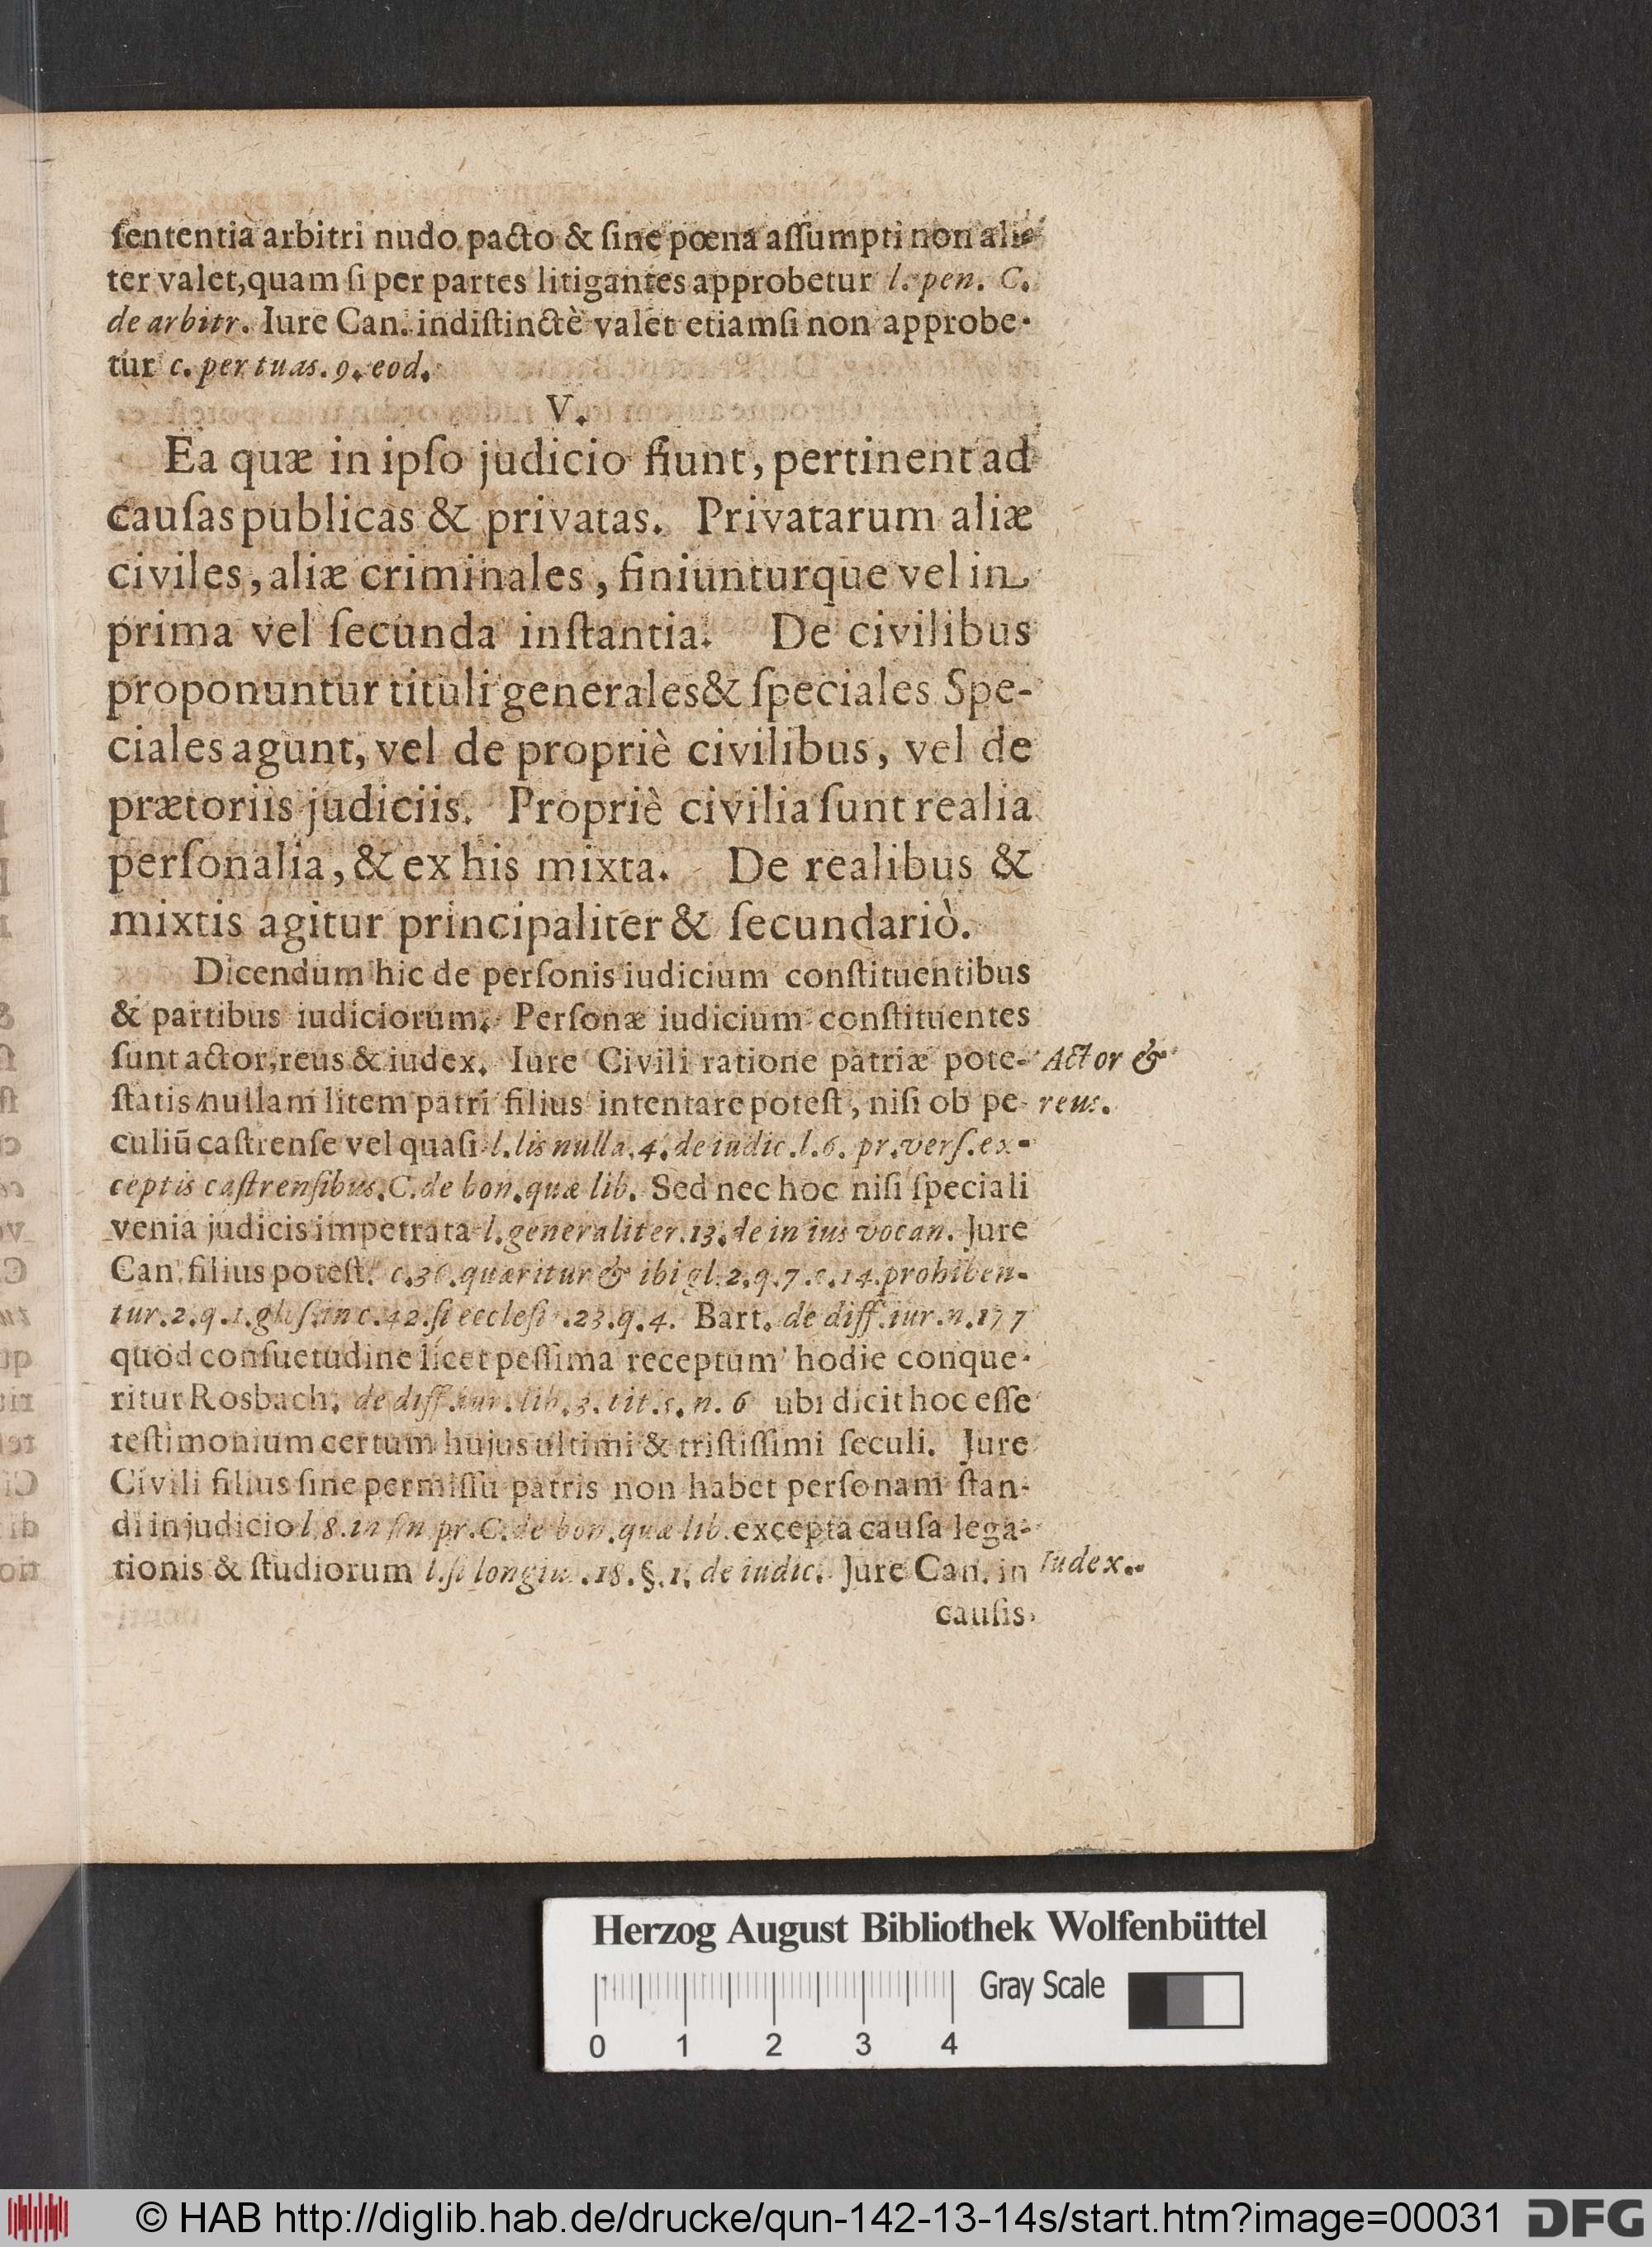 ſententia arbitri nudo pacto & ſine pœna aſſumpti non alie
ter valet, quam ſi per partes litigantes approbetur l. pen. C.
de arbitr. Iure Can. indiſtinctè valet etiamſi non approbe-
tur c. per tuas. 9. eod.
V.
Ea quæ in ipſo judicio fiunt, pertinent ad
cauſas publicas & privatas. Privatarum aliæ
civiles, aliæ criminales, finiunturque vel in
prima vel ſecunda inſtantia. De civilibus
proponuntur tituli generales & ſpeciales Spe-
ciales agunt, vel de propriè civilibus, vel de
prætoriis judiciis. Propriè civilia ſunt realia
perſonalia, & ex his mixta. De realibus &
mixtis agitur principaliter & ſecundariò.
Dicendum hic de perſonis iudicium conſtituentibus
& partibus iudiciorum. Perſonæ iudicium conſtituentes
ſunt actor, reus & iudex. Iure Civili ratione patriæ pote- Actor &
ſtatis nullam litem patri filius intentare poteſt, niſi ob pe- reus.
culiū caſtrenſe vel quaſi l. lis nulla. 4. de iudic. l. 6. pr. verſ. ex-
ceptis caſtrenſibus. C. de bon. quæ lib. Sed nec hoc niſi ſpeciali
venia judicis impetrata l. generaliter. 13. de in ius vocan. Jure
Can. filius poteſt. c. 36. quæritur & ibi gl. 2. q. 7. c. 14. prohiben-
tur. 2. q. 1. gloſ. in c. 42. ſi eccleſi .23. q. 4. Bart. de diff. iur. n. 177
quod conſuetudine licet peſſima receptum hodie conque-
ritur Rosbach. de diff. iur. lib. 3. tit. n. 6 ubi dicit hoc eſſe
teſtimonium certum hujus ultimi & triſtiſſimi ſeculi. Jure
Civili filius ſine permiſſu patris non habet perſonam ſtan-
di in judicio l. 8. in fin. pr. C. de bon. quæ lib. excepta cauſa lega-
tionis & ſtudiorum l. ſi longiu .18. §. 1. de iudic. Jure Can. in Iudex.
cauſis
Herzog August Bibliothek Wolfenbüttel
Gray Scale
0 1 2 3 4
© HAB http://diglib.hab.de/drucke/qun-142-13-14s/start.htm?image=00031 DFG